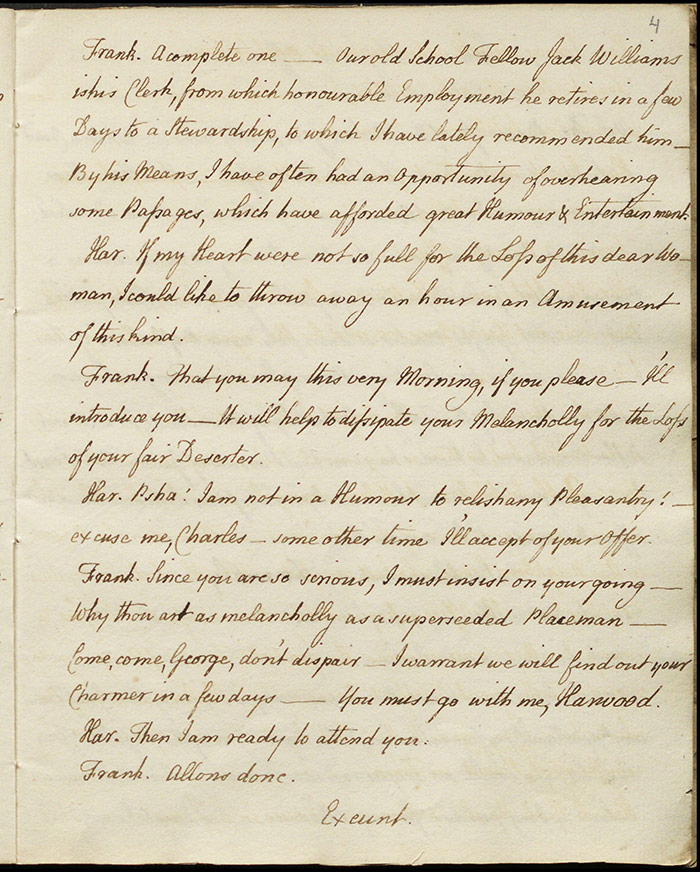 4
Frank. A complete one — Our old School Fellow Jack Williams
is his Clerk, from which honourable Employment he retires in a few
Days to a Stewardship, to which I have lately recommended him —
By his Means, I have often had an Opportunity of overhearing
some Paſsages, which have afforded great Humour & Entertainment.
Har. If my Heart were not so full for the Loſs of this dear Wo-
man, I could like to throw away an hour in an Amusement
of this kind.
Frank. That you may this very Morning, if you please — I'll
introduce you — It will help to diſsipate your Melancholly for the Loſs
of your fair Deserter.
Har. Psha! I am not in a Humour to relish any Pleasantry! —
excuse me, Charles — some other time I'll accept of your Offer.
Frank. Since you are so serious, I must insist on your going —
Why thou art as melancholly as a superseeded Placeman —
Come, come, George, don't dispair — I warrant we will find out your
Charmer in a few days — You must go with me, Harwood.
Har. Then I am ready to attend you.
Frank. Allons donc.
Exeunt.